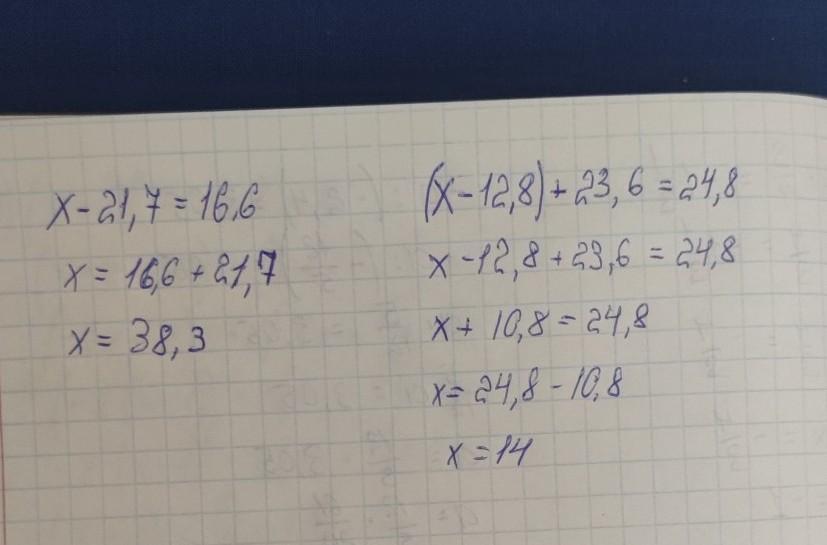 x - 21,7 = 16,6
x = 16,6 + 21,7
x = 38,3
(x - 12,8) + 23,6 = 24,8
x - 12,8 + 23,6 = 24,8
x + 10,8 = 24,8
x = 24,8 - 10,8
x = 14